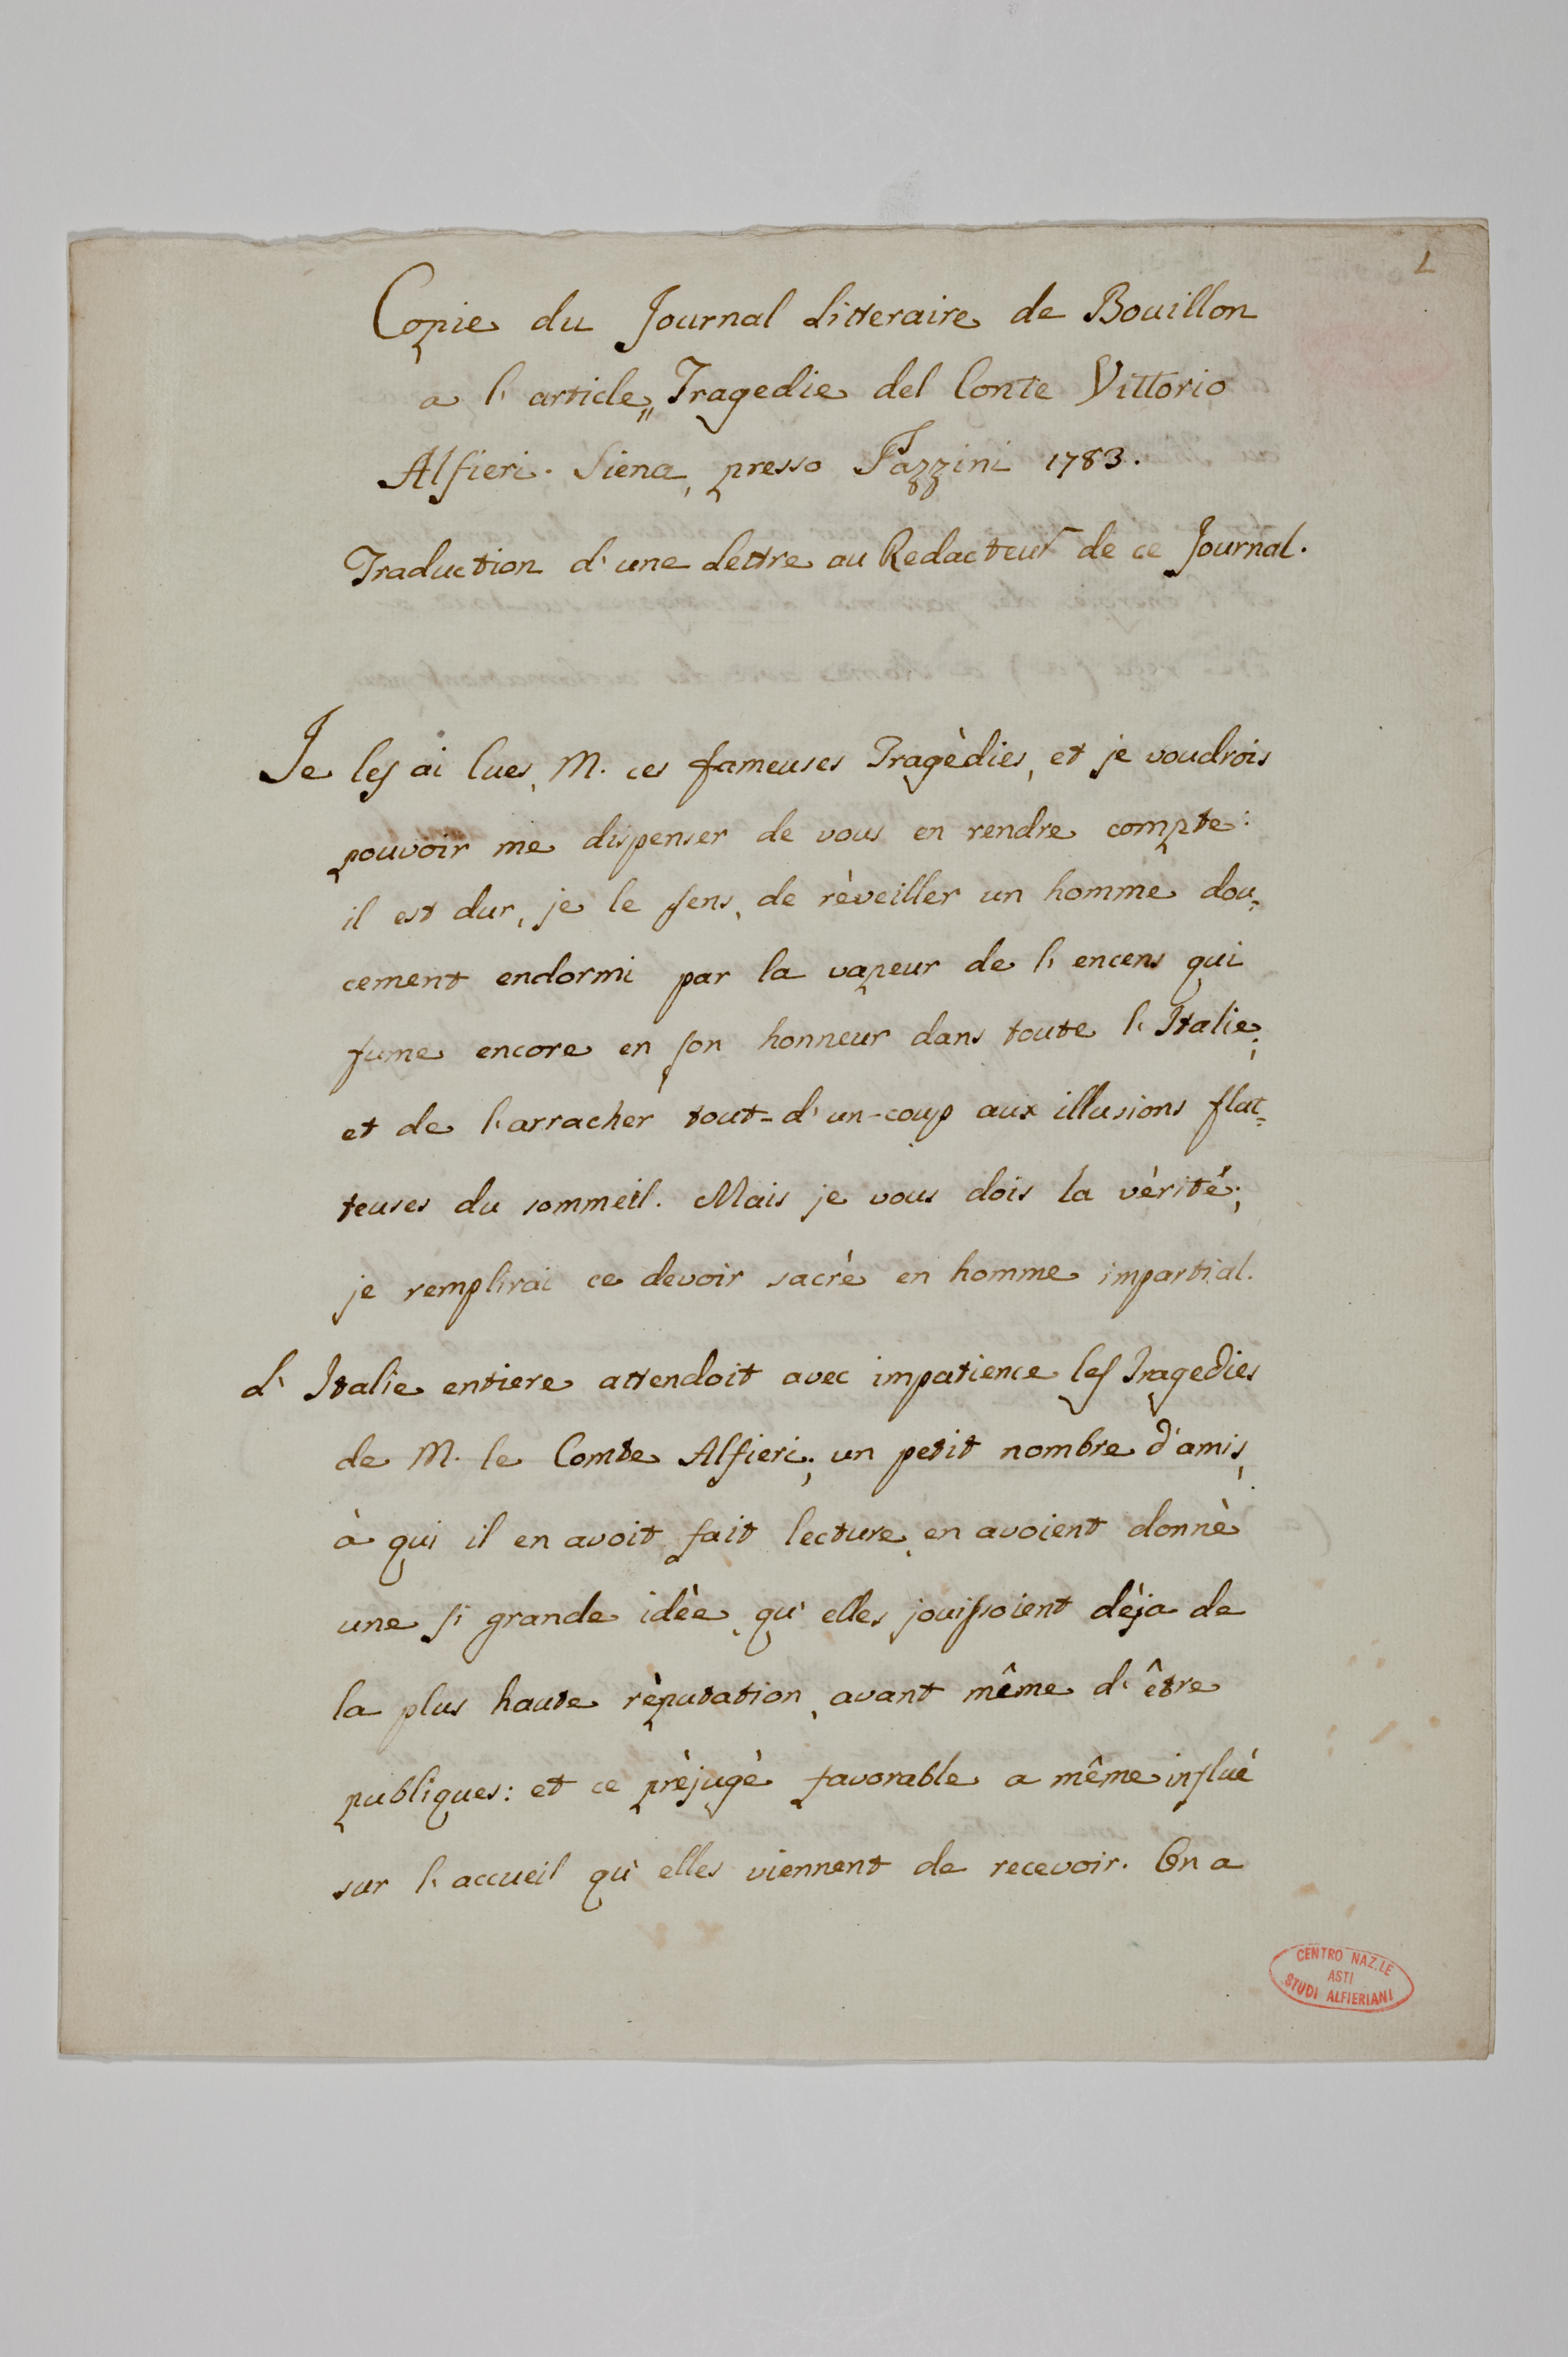 1
Copie du Journal Litteraire de Bouillon
a l'article „ Tragedie del Conte Vittorio
Alfieri. Siena, presso Pazzini 1783.
Traduction d'une Lettre au Redacteur de ce Journal.
Je les ai lues, M. ces fameuses Tragèdies, et je voudrois
pouvoir me dispenser de vous en rendre compte:
il est dur, je le sens, de rèveiller un homme dou=
cement endormi par la vapeur de l'encens qui
fume encore en son honneur dans toute l'Italie;
et de l'arracher tout-d'un-coup aux illusions flat=
teuses du sommeil. Mais je vous dois la vèritè;
je remplirai ce devoir sacrè en homme impartial.
L'Italie entiere attendoit avec impatience les Tragedies
de M. le Comte Alfieri; un petit nombre d'amis,
à qui il en avoit fait lecture, en avoient donnè
une si grande idèe, qu'elles jouissoient dèja de
la plus haute rèputation, avant même d'être
publiques: et ce prèjugè favorable a même influè
sur l'accueil qu'elles viennent de recevoir. On a
CENTRO NAZ.LE
ASTI
STUDI ALFIERIANI